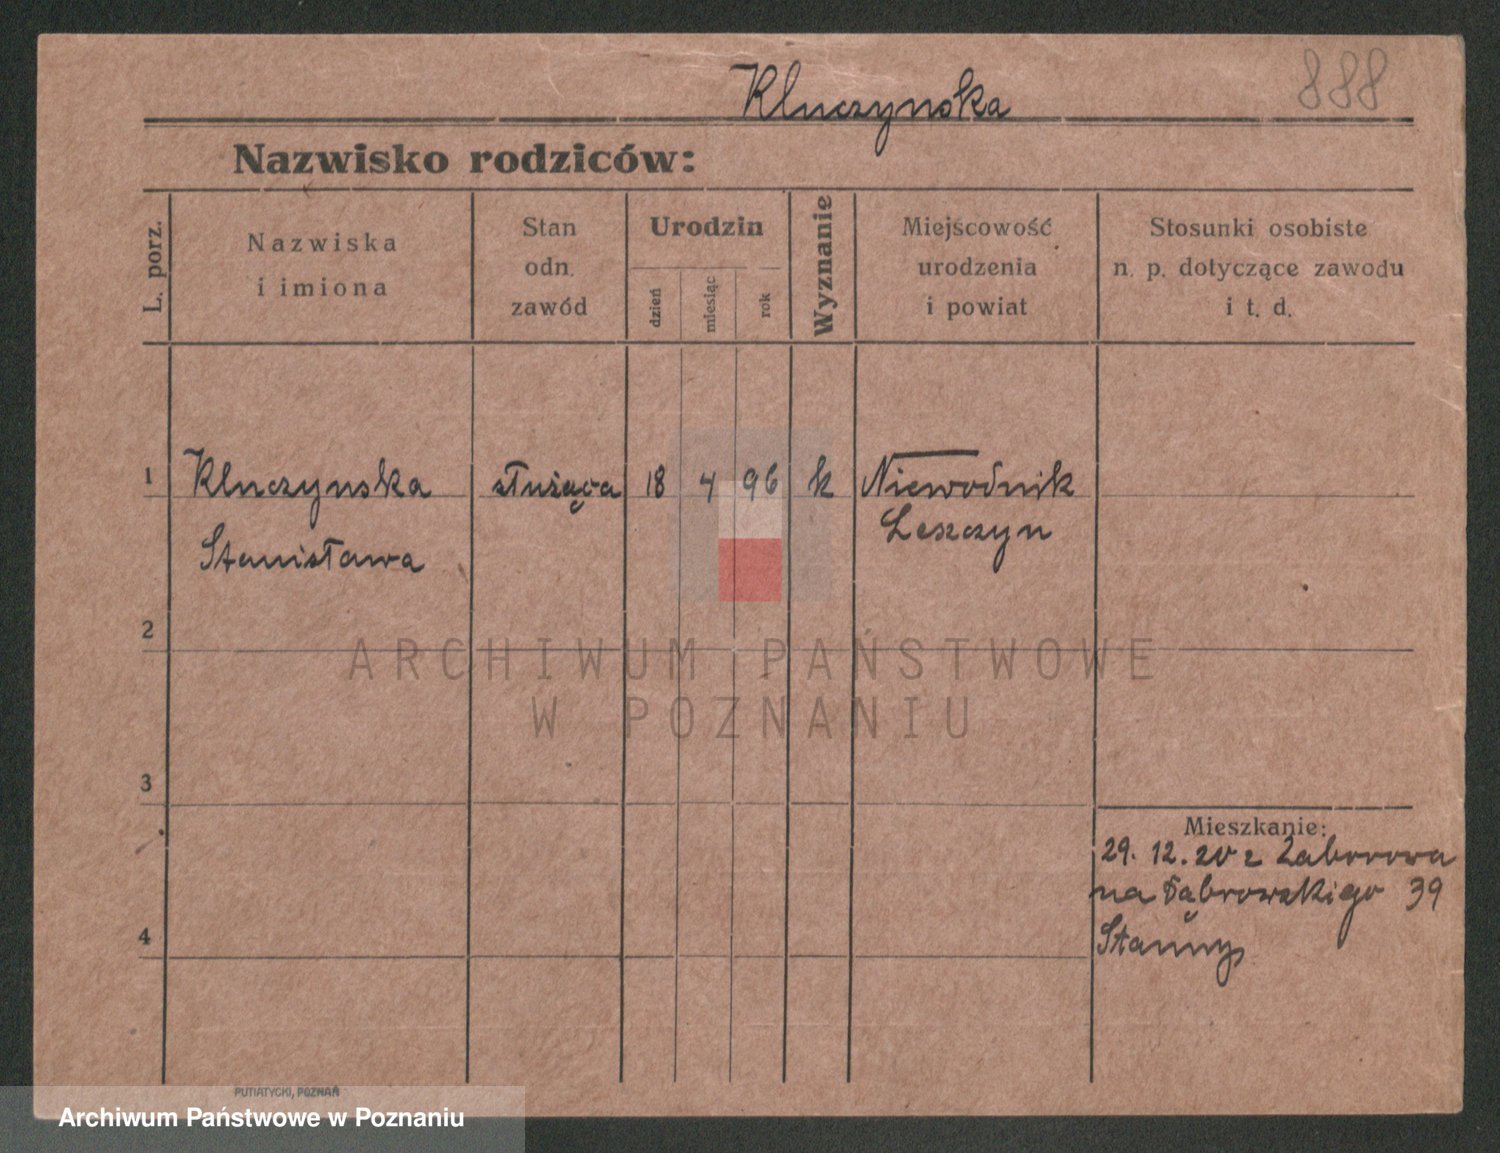 Kluczynska
888
Nazwisko rodziców:
L. porz.
Nazwiska
i imiona
Stan
odn.
zawód
Urodzin
dzień
miesiąc
rok
Wyznanie
Miejscowość
urodzenia
i powiat
Stosunki osobiste
n. p. dotyczące zawodu
i t. d.
1
Kluczynska
służąca
18
4
96
k
Niewodnik
Leszczyn
Stanisława
2
ARCHIWUM PAŃSTWOWE
W POZNANIU
3
Mieszkanie:
29. 12. 20 z Zaborowa
na Dąbrowskiego 39
4
PUTIATYCKI, POZNAŃ
Archiwum Państwowe w Poznaniu